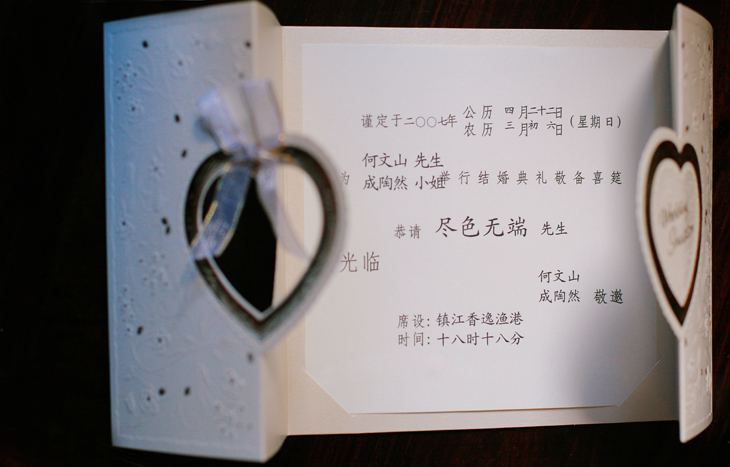 谨定于二〇〇七年 公历 四月二十二日
农历 三月初六日 (星期日)
为 何文山 先生
成陶然 小姐 举行结婚典礼敬备喜筵
恭请 尽色无端 先生
光临
何文山
成陶然 敬邀
席设: 镇江香逸渔港
时间: 十八时十八分
Wedding